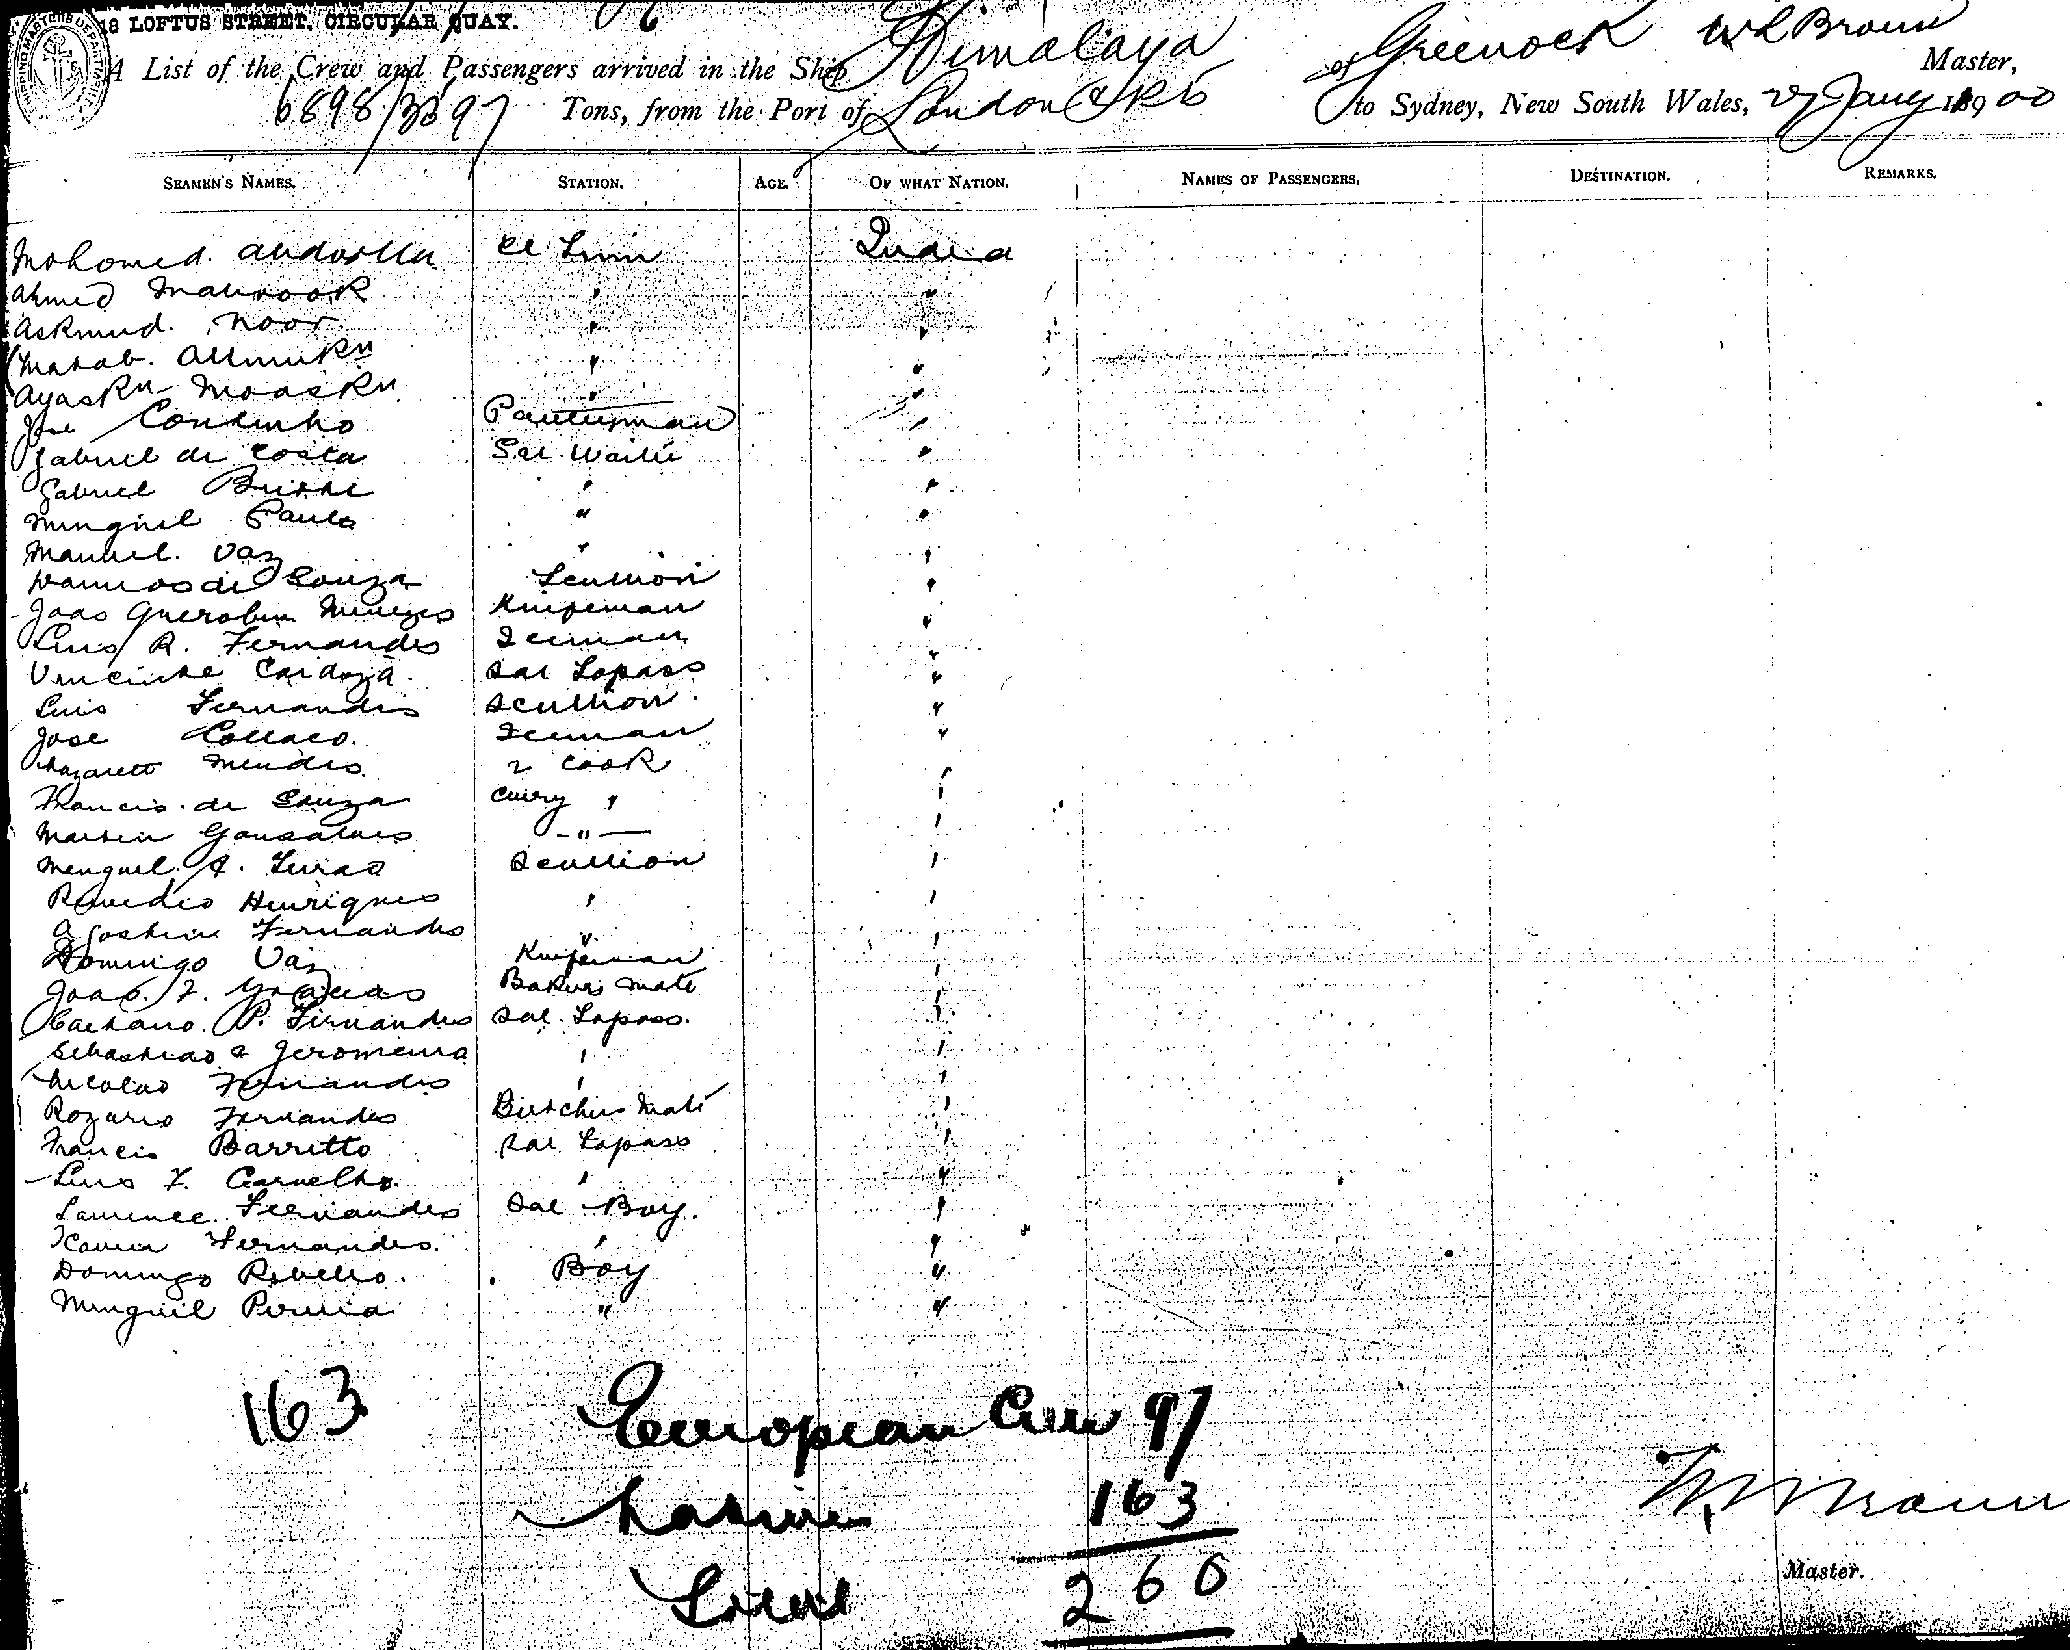 18 LOFTUS STREET, CIRCULAR QUAY.
A List of the Crew and Passengers arrived in the Ship Himalaya of Greenock W L Broun Master,
6898/3897 Tons, from the Port of London & Pts to Sydney, New South Wales, 27 Jany 1900
SEAMEN'S NAMES. STATION. AGE. OF WHAT NATION. NAMES OF PASSENGERS. DESTINATION. REMARKS.
Mohomed India
Ahmed Mabrook " "
Noor " "
" "
" "
Jose Coutinho Pantryman "
Gabriel de Costa Sal Waiter "
Gabriel " "
Minguel Paulo " "
Manuel Vaz " "
de Souza Scullion "
Joao Menezes Knifeman "
Luis R. Fernandes "
Cardoza Sal Topass "
Luis Fernandes Scullion "
Jose Collaco "
Nazareth Mendes 2 Cook "
Francis de Souza Curry " "
Martin Gonsalves - " - "
Menguel A. Scullion "
Remedio Henriques " "
Agostin Fernandes " "
Domingo Vaz Knifeman "
Joao. F. Bakers Mate "
Caetano P. Fernandes Sal Topass "
Sebastiao " "
Nicolao Fernandes " "
Rozario Fernandes Butchers Mate "
Francis Barretto Sal Topass "
Luis F. Carvelho " "
Laurence Fernandes Sal Boy. "
Xavier Fernandes " "
Domingo Rebello. Boy "
Minguel Pereira " "
163 European Crew 97
Native 163
Total 260
Master.